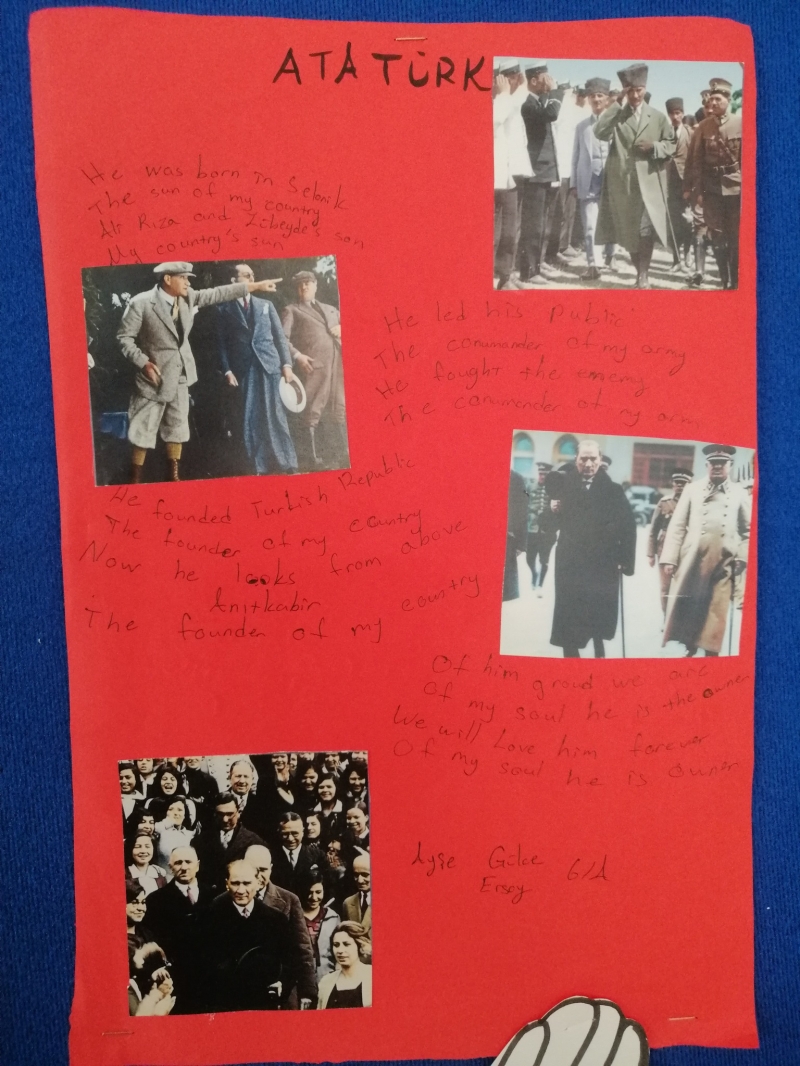 ATATÜRK
He was born in Selanik
The sun of my country
Ali Rıza and Zübeyde's son
My country's sun
He led his public
The commander of my army
He fought the enemy
The commander of my army
He founded Turkish Republic
The founder of my country
Now he looks from above
Anıtkabir
The founder of my country
Of him groud we are
Of my soul he is the owner
We will love him forever
Of my soul he is owner
Ayşe Gülce 6/A
Ersoy